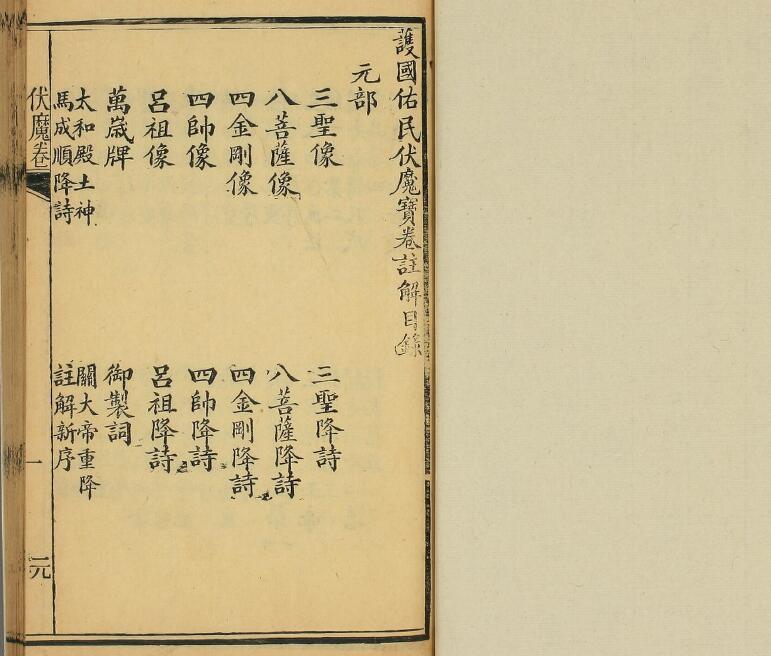 護國佑民伏魔寶卷註解目錄
元部
三聖像
三聖降詩
八菩薩像
八菩薩降詩
四金剛像
四金剛降詩
四帥像
四帥降詩
呂祖像
呂祖降詩
萬嵗牌
御製詞
太和殿土神
馬成順降詩
關大帝重降
註解新序
伏魔卷
一
元